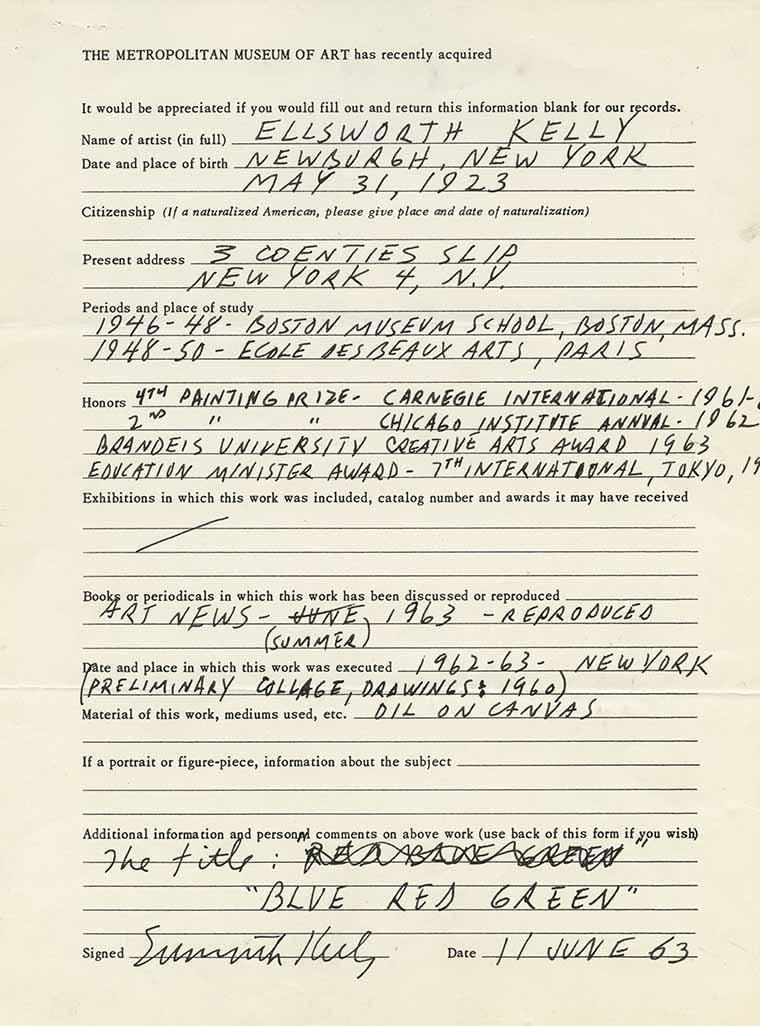 THE METROPOLITAN MUSEUM OF ART has recently acquired
It would be appreciated if you would fill out and return this information blank for our records.
Name of artist (in full) ELLSWORTH KELLY
Date and place of birth NEWBURGH, NEW YORK
MAY 31, 1923
Citizenship (If a naturalized American, please give place and date of naturalization)
Present address 3 COENTIES SLIP
NEW YORK 4, N.Y.
Periods and place of study
1946-48 - BOSTON MUSEUM SCHOOL, BOSTON, MASS.
1948-50 - ECOLE DES BEAUX ARTS, PARIS
Honors 4TH PAINTING PRIZE - CARNEGIE INTERNATIONAL - 1961-
2ND " " CHICAGO INSTITUTE ANNUAL - 1962
BRANDEIS UNIVERSITY CREATIVE ARTS AWARD 1963
EDUCATION MINISTER AWARD - 7TH INTERNATIONAL, TOKYO, 19
Exhibitions in which this work was included, catalog number and awards it may have received
Books or periodicals in which this work has been discussed or reproduced
ART NEWS - JUNE, 1963 - REPRODUCED
(SUMMER)
Date and place in which this work was executed 1962-63 - NEW YORK
(PRELIMINARY COLLAGE, DRAWINGS: 1960)
Material of this work, mediums used, etc. OIL ON CANVAS
If a portrait or figure-piece, information about the subject
Additional information and personal comments on above work (use back of this form if you wish)
The title:
"BLUE RED GREEN"
Signed Ellsworth Kelly Date 11 JUNE 63